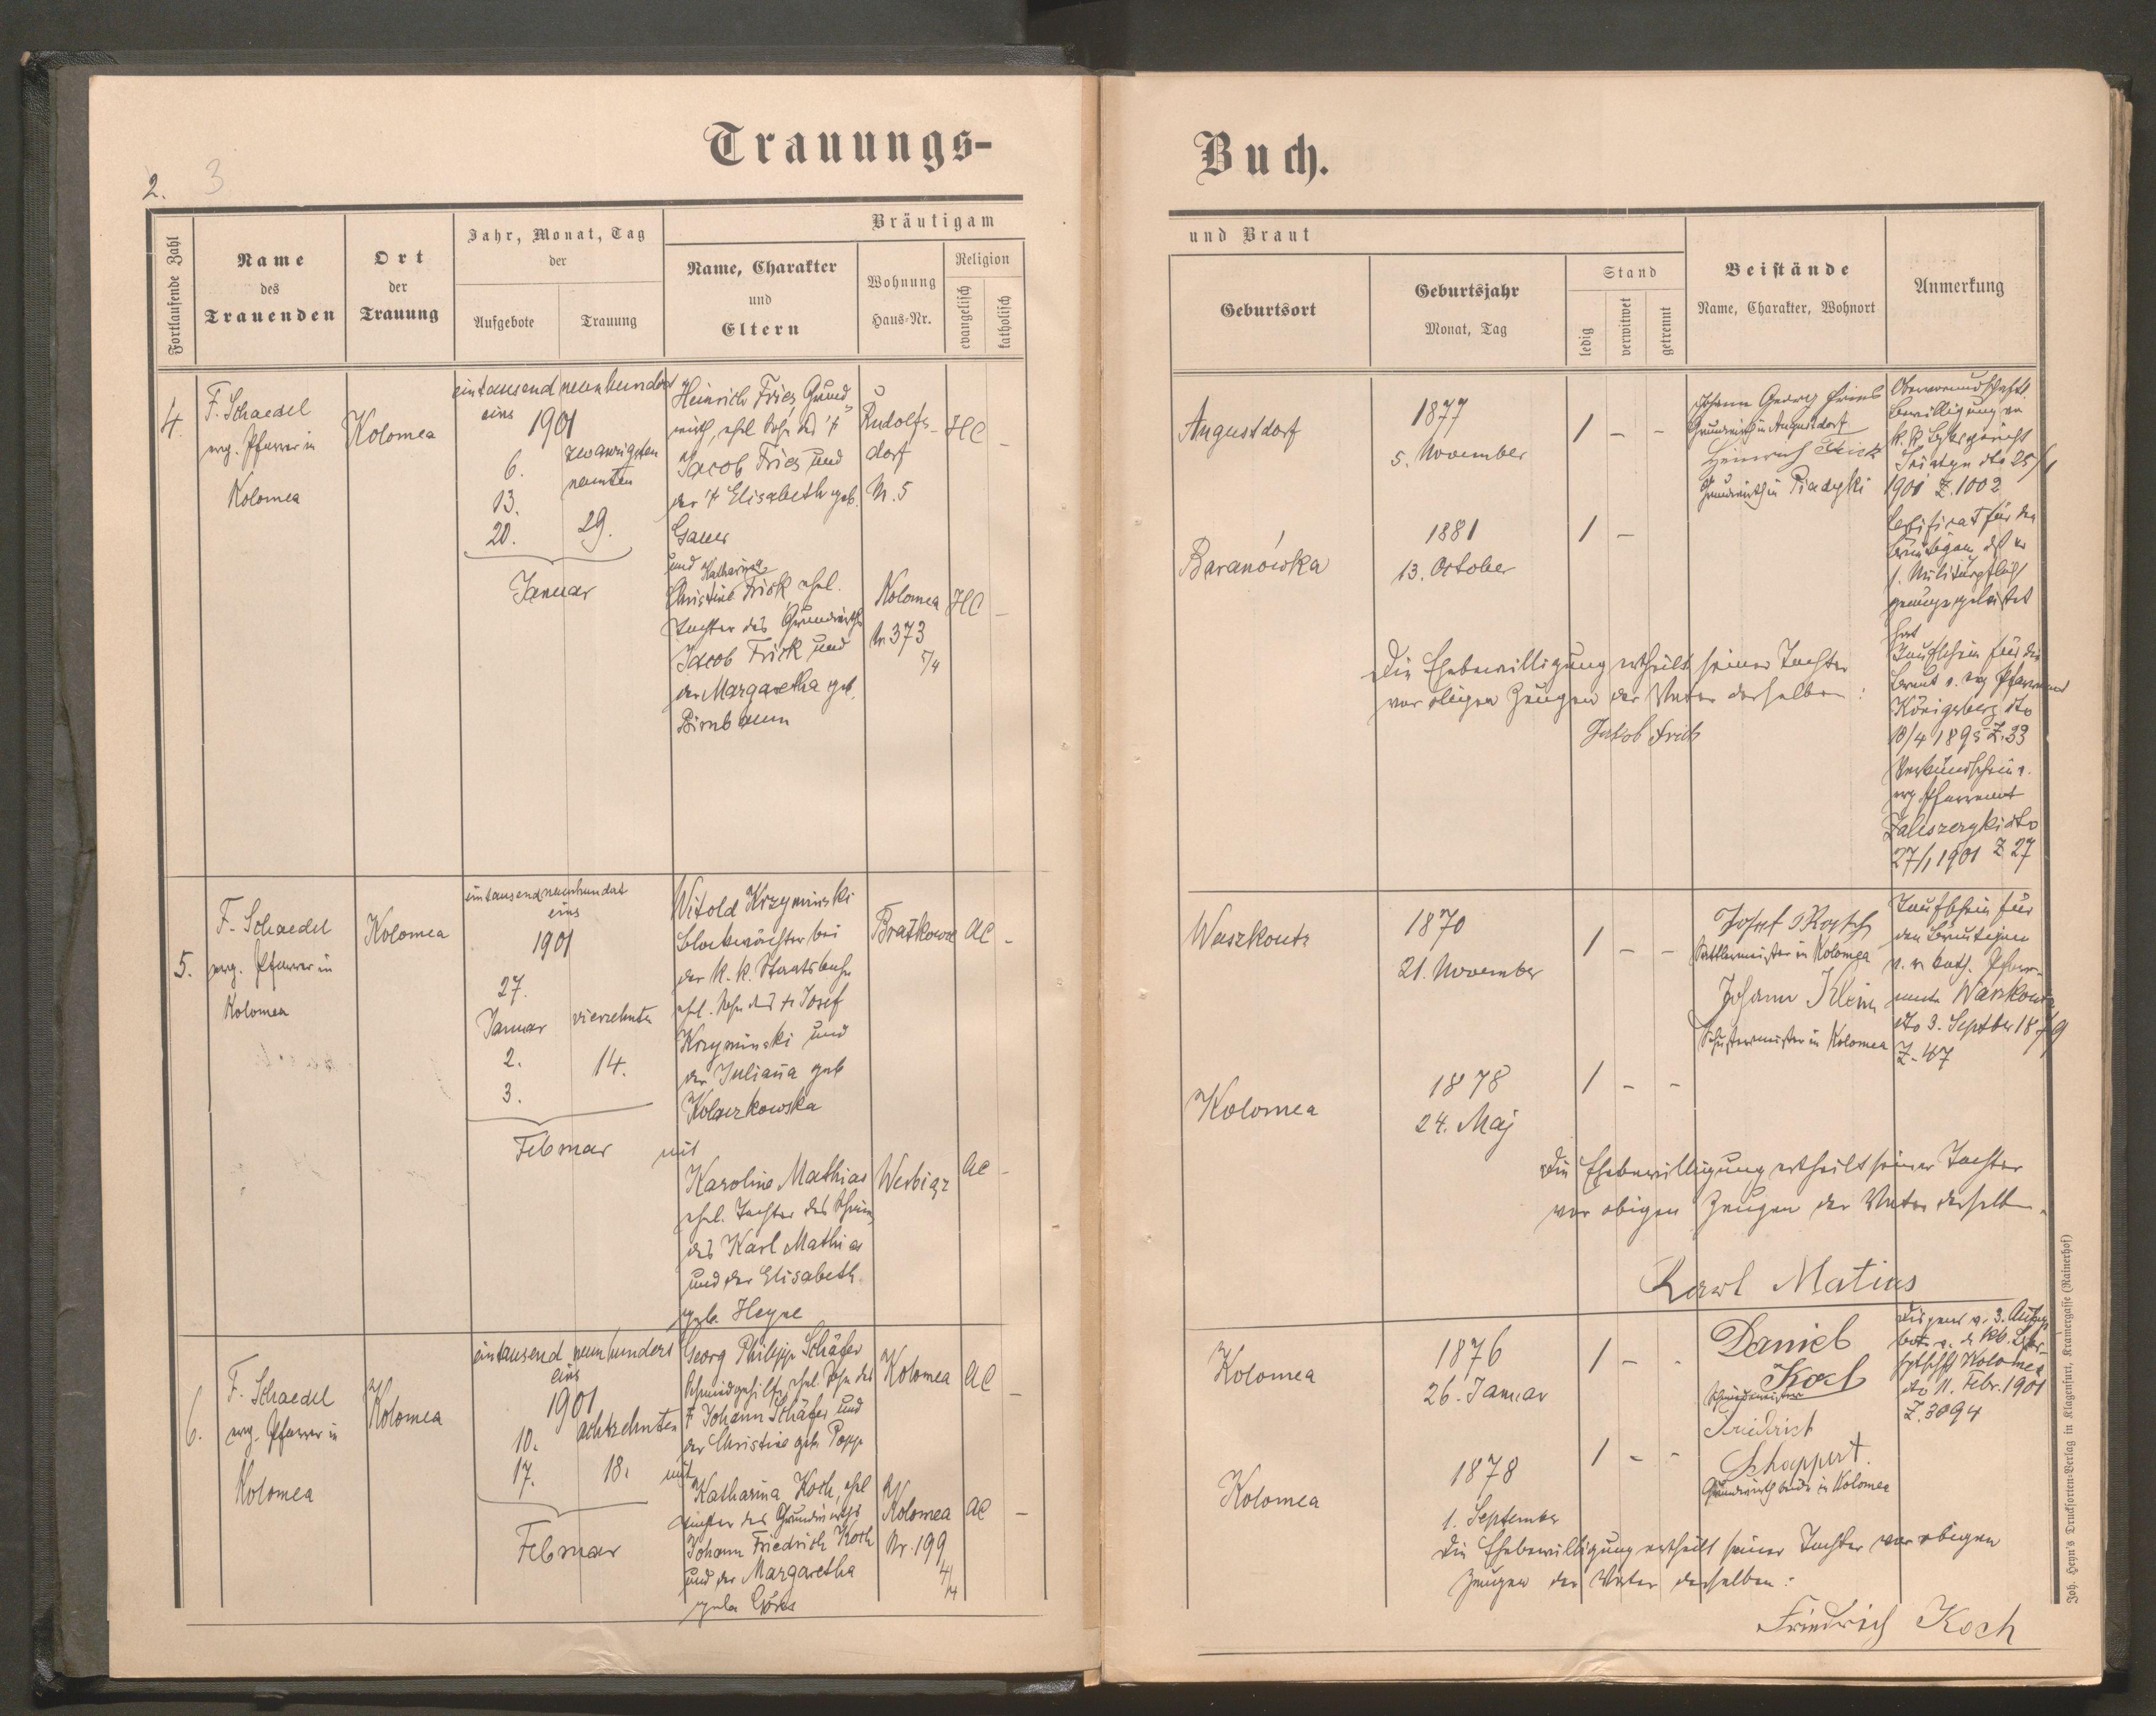 Trauungs-
Buch.
2.
3
Fortlaufende Zahl
Name
des
Trauenden
Ort
der
Trauung
Jahr, Monat, Tag
der
Aufgebote
Trauung
Bräutigam
Name, Charakter
und
Eltern
Wohnung
Haus-Nr.
Religion
evangelisch
katholisch
und Braut
Geburtsort
Geburtsjahr
Monat, Tag
Stand
ledig
verwitwet
getrennt
Beistände
Name, Charakter, Wohnort
Anmerkung
4.
F. Schaedel
evg. Pfarrer in
Kolomea
Kolomea
eintausend neunhundert
eins
1901
6.
13.
20.
neunten
29.
Januar
Heinrich Fries, Grund-
wirth, ehel. Sohn des †
Jacob Fries und
der † Elisabeth geb.
Gauer
und
Katharina
Christine Frick ehel.
Tochter des Grundwirths
Jacob Frick und
der Margaretha geb.
Birnbaum
Rudolfs-
dorf
N. 5
HC -
Kolomea
Nr. 373
HC -
Augustdorf
1877
5. November
1 - -
Johann Georg Fries
Grundwirth in Augustdorf
Heinrich Frick
Grundwirth in Piadyki
Bewilligung
k. k. Bezirksgericht
Sniatyn dto 25/1
1901 Z. 1002
Certificat für den
Bräutigam, daß er
s. Militärpflicht
geleistet
hat
Taufschein für die
Braut v. evg. Pfarramt
Königsberg dto
1895 Z. 33
Verkündschein v.
evg. Pfarramt
Zaleszczyki dto
27/1 1901 Z 27
Baranówka
1881
13. October
1 -
Die Ehebewilligung ertheilt seiner Tochter
vor obigen Zeugen der Vater derselben:
Jakob Frick
5.
F. Schaedel
evg. Pfarrer in
Kolomea
Kolomea
eintausend neunhundert
eins
1901
27.
Januar
2.
3.
vierzehnten
14.
Februar
Witold Krzyminski
Blockwächter bei
der k. k. Staatsbahn
ehel. Sohn des † Josef
Krzyminski und
der Juliana geb.
mit
Karoline Mathias
ehel. Tochter des
des Karl Mathias
und der Elisabeth
geb. Heyne
AC -
Werbiąz
AC -
Waszkoutz
1870
21. November
1 - -
Josef
Sattlermeister in Kolomea
Johann Klein
Schustermeister in Kolomea
Taufschein für
den Bräutigam
v. r. kath. Pfarr-
amte Waszkoutz
dto 3. Septber 1879
Z. 47
Kolomea
1878
24. Maj
1 - -
Die Ehebewilligung ertheilt seiner Tochter
vor obigen Zeugen der Vater derselben.
Karl Matias
6.
F. Schaedel
evg. Pfarrer in
Kolomea
Kolomea
eintausend neunhundert
eins
1901
10.
17.
achtzehnten
18.
Februar
Georg Philipp Schäfer
Schmiedgehilfe, ehel. Sohn des
† Johann Schäfer und
der Christine geb. Popp
mit
Katharina Koch, ehel
Tochter des Grundwirths
Johann Friedrich Koch
und der Margaretha
Kolomea
AC -
Kolomea
Nr. 199
AC -
Kolomea
1876
26. Januar
1 - -
Daniel
Koch
Schmiedmeister
Friedrich
Schappert.
Grundwirth beide in Kolomea
Dispens v. 3. Aufge-
bote v. d. kk. Bezirks-
hptschft Kolomea
dto 11. Febr. 1901
Z. 3094
Kolomea
1878
1. September
1 - -
Die Ehebewilligung ertheilt seiner Tochter vor obigen
Zeugen der Vater derselben:
Friedrich Koch
Joh. Heyn's Drucksorten-Verlag in Klagenfurt, Kramergasse (Rainerhof)